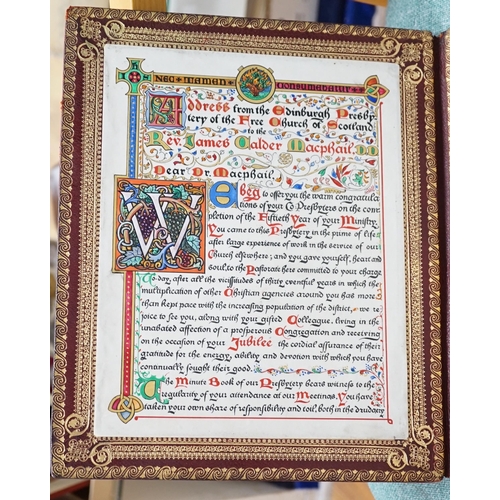 IHS NEC TAMEN CONSUMEBATUR
Address from the Edinburgh Presby-
tery of the Free Church of Scotland
to the
Rev. James Calder Macphail, DD
Dear Dr. Macphail,
We beg to offer you the warm congratula
tions of your Co-Presbyters on the com
pletion of the Fiftieth Year of your Ministry.
You came to this Presbytery in the prime of life
after large experience of work in the service of our
Church elsewhere; and you gave yourself, heart and
soul, to the Pastorate here committed to your charge
To-day, after all the vicissitudes of thirty eventful years in which the
multiplication of other Christian agencies around you has more
than kept pace with the increasing population of the district, we re
joice to see you, along with your gifted Colleague, living in the
unabated affection of a prosperous Congregation and receiving
on the occasion of your Jubilee the cordial assurance of their
gratitude for the energy, ability and devotion with which you have
continually sought their good.
The Minute Book of our Presbytery bears witness to the
regularity of your attendance at our Meetings. You have
taken your own share of responsibility and toil, both in the drudgery